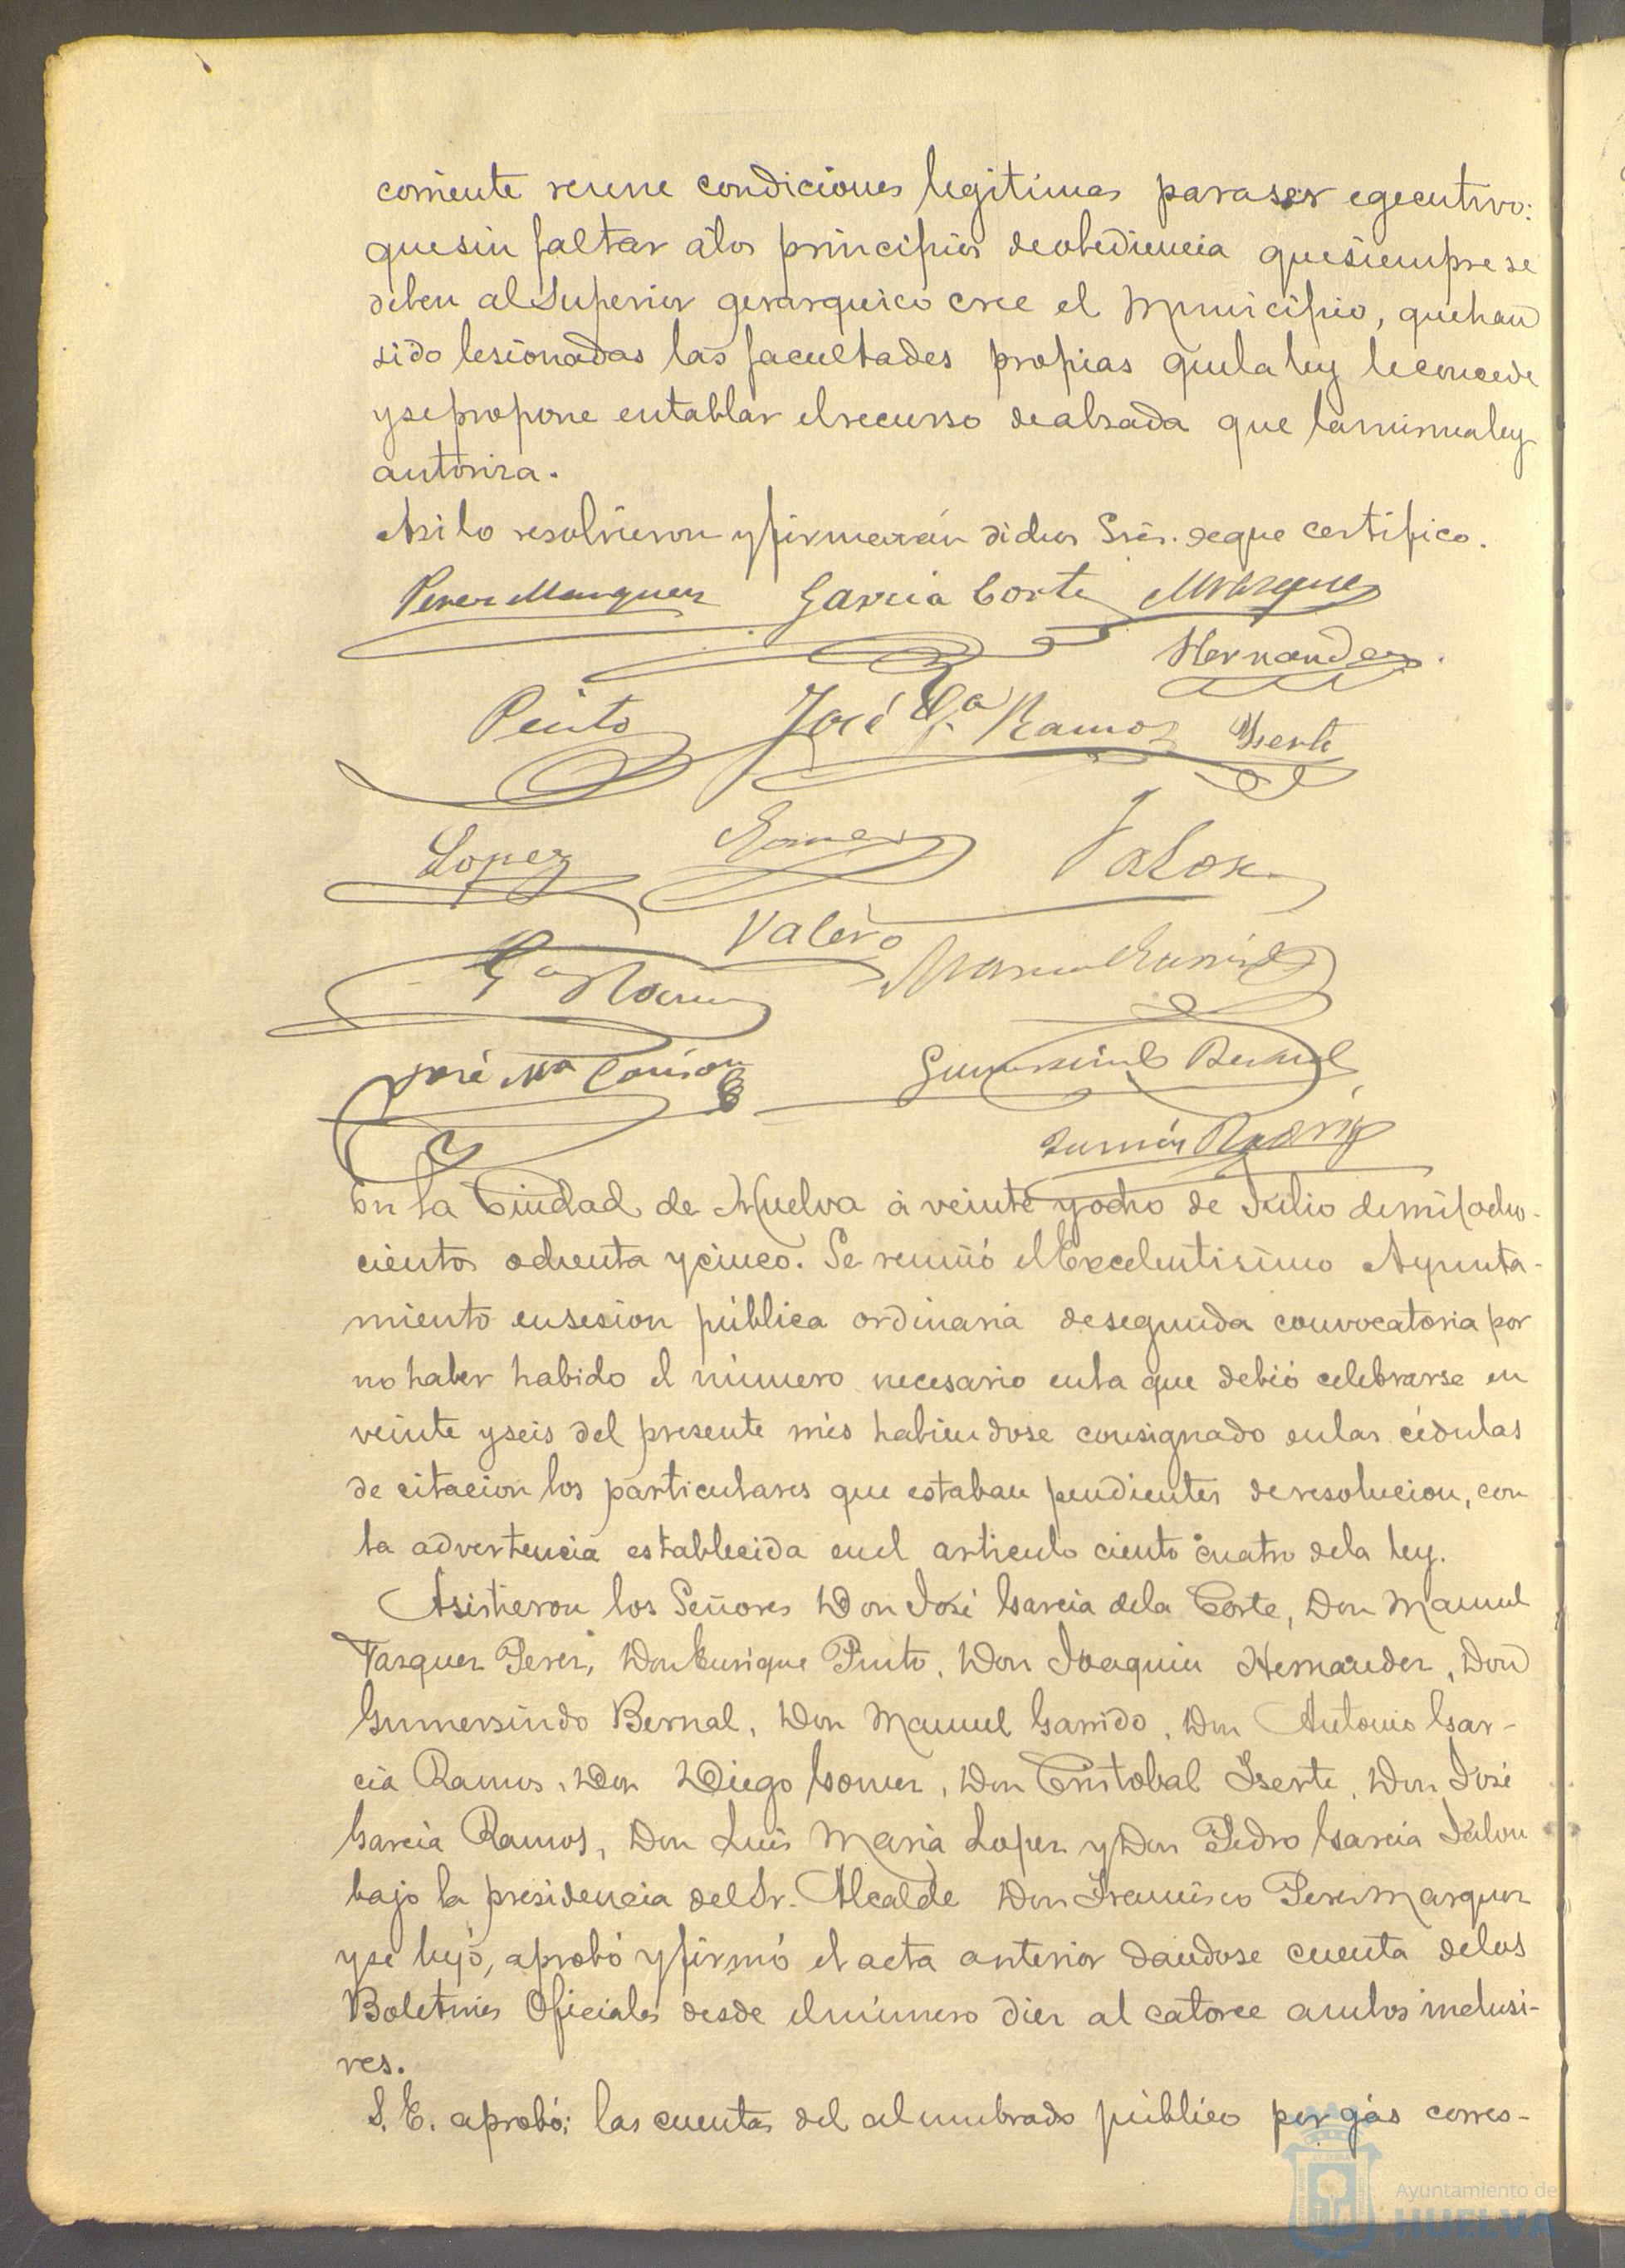 corriente reune condiciones legitimas para ser egecutivo:
que sin faltar á los principios de obediencia que siempre se
deben al Superior gerarquico cree el Municipio, que han
sido lesionadas las facultades propias que la ley le concede
y se propone entablar el recurso de alzada que la misma ley
autoriza.
Asi lo resolvieron y firmarán dichos Sres. de que certifico.
Perez Marquez Garcia Corte Vazquez
Hernandez
Pinto José Ga Ramos Yserte
Lopez Gomez Jalon
Valero
Ga Ramos Manuel Garrido
José Ma
Gumersindo Bernal
En la Ciudad de Huelva á veinte y ocho de Julio de mil ocho-
cientos ochenta y cinco. Se reunió el Excelentisimo Ayunta-
miento en sesion pública ordinaria de segunda convocatoria por
no haber habido el número necesario en la que debió celebrarse en
veinte y seis del presente més habiendose consignado en las cédulas
de citacion los particulares que estaban pendientes de resolucion, con
la advertencia establecida en el articulo ciento cuatro de la ley.
Asistieron los Señores Don José Garcia de la Corte, Don Manuel
Vazquez Perez, Don Enrique Pinto, Don Joaquin Hernandez, Don
Gumersindo Bernal, Don Manuel Garrido, Don Antonio Gar-
cia Ramos, Don Diego Gomez, Don Cristobal Yserte, Don José
Garcia Ramos, Don Luis Maria Lopez y Don Pedro Garcia Jalon
bajo la presidencia del Sr. Alcalde Don Francisco Perez Marquez
y se leyó, aprobó y firmó el acta anterior dandose cuenta de los
Boletines Oficiales desde el número diez al catorce ambos inclusi-
ves.
S. E. aprobó: las cuentas del alumbrado público por gás corres-
Ayuntamiento de
HUELVA